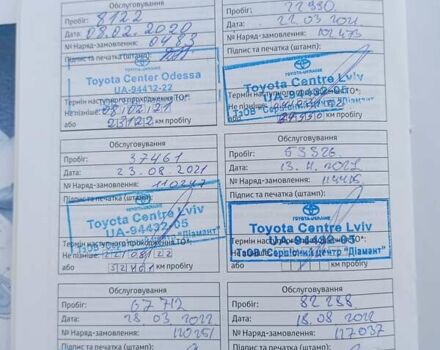 Обслуговування
Пробіг: 8122
Дата: 08.02.2020
№ Наряд-замовлення: 0483
Підпис та печатка (штамп):
Toyota Center Odessa
UA-94432-22
Термін наступного проходження ТО*:
Не пізніше: 08/02/21
або 23122 км пробігу
Обслуговування
Пробіг: 22990
Дата: 22.03.2021
№ Наряд-замовлення: 102473
Підпис та печатка (штамп):
TOYOTA-UKRAINE
Toyota Centre Lviv
UA-94432-05
ТзОВ "Сервісний центр "Діамант"
Термін наступного проходження ТО*:
Не пізніше:
або км пробігу
Обслуговування
Пробіг: 37461
Дата: 23.08.2021
№ Наряд-замовлення: 110247
Підпис та печатка (штамп):
TOYOTA-UKRAINE
Toyota Centre Lviv
UA-94432-05
ТзОВ "Сервісний центр "Діамант"
Термін наступного проходження ТО*:
Не пізніше:
або км пробігу
Обслуговування
Пробіг: 53326
Дата:
№ Наряд-замовлення:
Підпис та печатка (штамп):
TOYOTA-UKRAINE
Toyota Centre Lviv
UA-94432-05
ТзОВ "Сервісний центр "Діамант"
Не пізніше:
або км пробігу
Обслуговування
Пробіг: 67712
Дата: 28 03 2022
№ Наряд-замовлення: 120251
Підпис та печатка (штамп):
Обслуговування
Пробіг: 82288
Дата: 18.08 2022
№ Наряд-замовлення: 127037
Підпис та печатка (штамп):